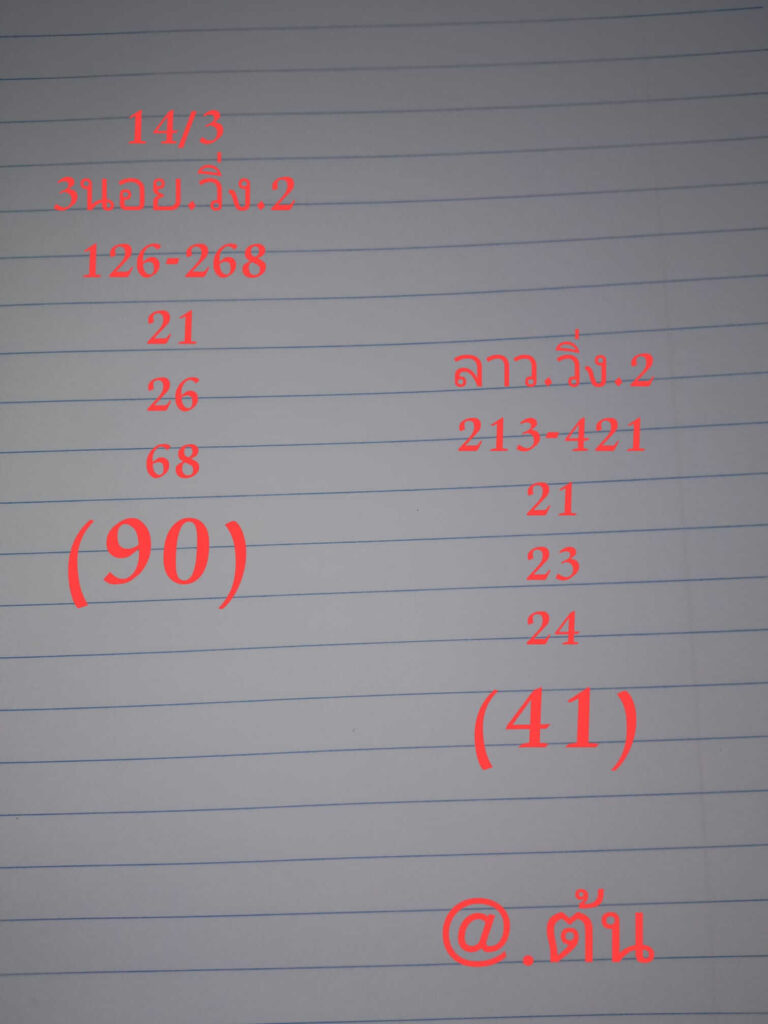 14/3
3นอย.วิ่ง.2
126-268
21
26
68
(90)
ลาว.วิ่ง.2
213-421
21
23
24
(41)
@.ต้น